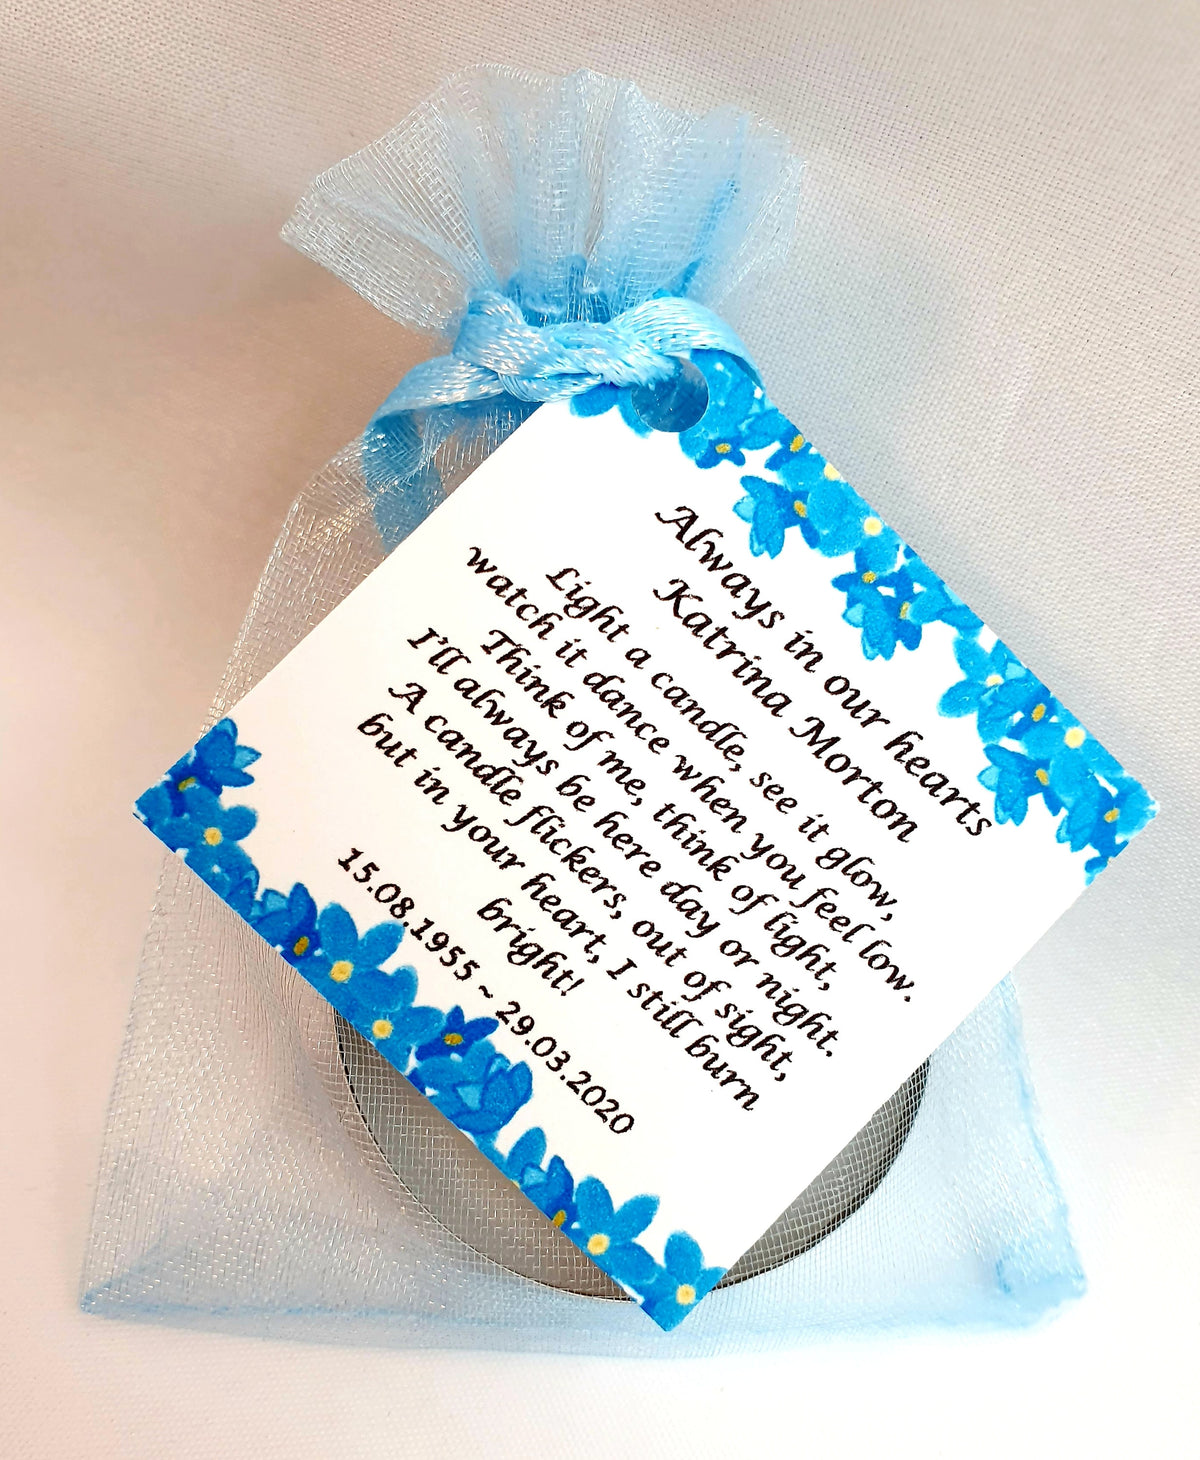 Always in our hearts
Katrina Morton
Light a candle, see it glow,
watch it dance when you feel low.
Think of me, think of light,
I'll always be here day or night.
A candle flickers, out of sight,
but in your heart, I still burn
bright!
15.08.1955 ~ 29.03.2020